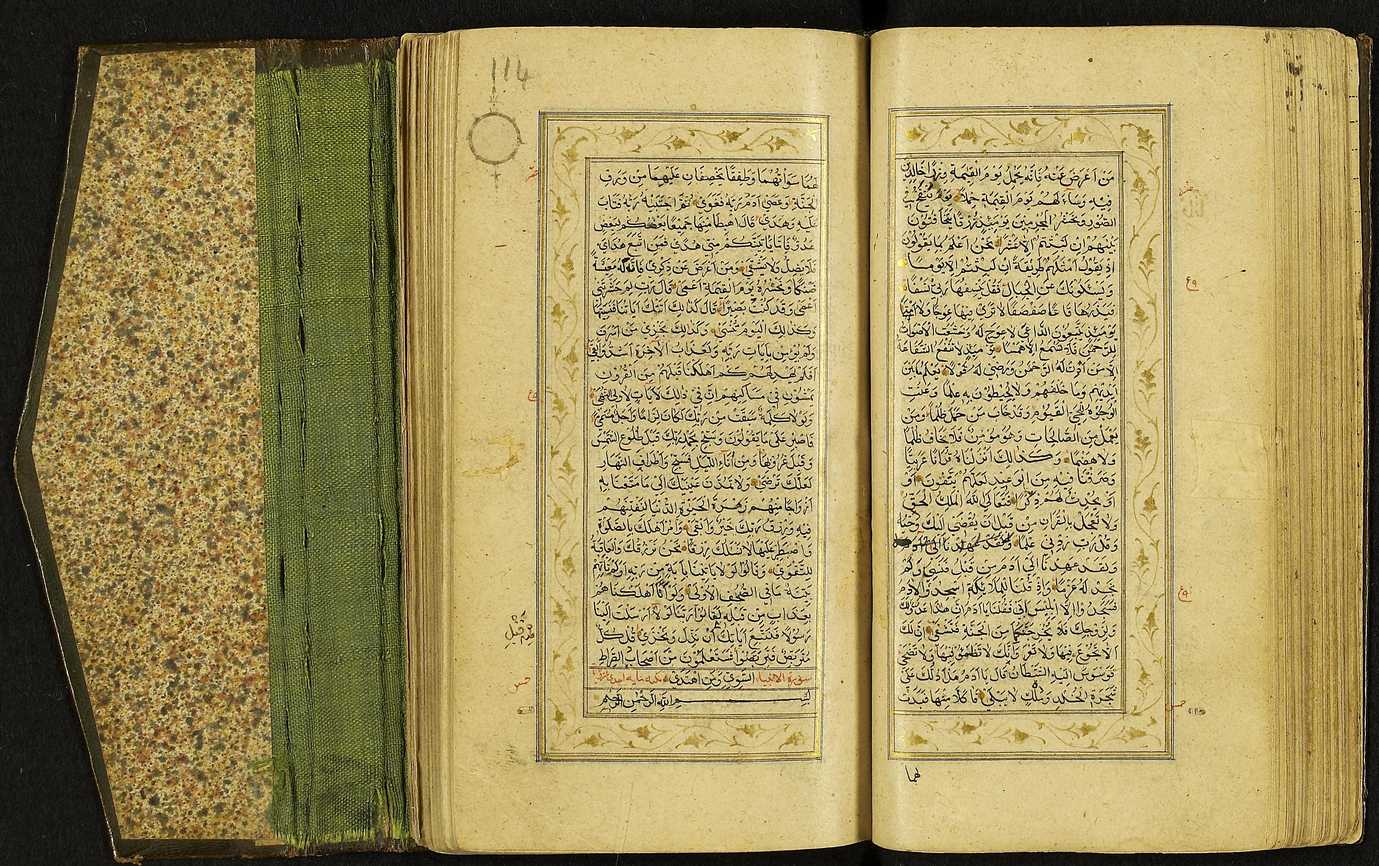 من اعرض عنه فانه يحمل يوم القيمة وزرا خالدين
فيه وساء لهم يوم القيمة حملا يوم ينفخ في
الصور ونحشر المجرمين يومئذ زرقا يتخافتون
بينهم ان لبثتم الا عشرا نحن اعلم بما يقولون
اذ يقول امثلهم طريقة ان لبثتم الا يوما
ويسئلونك عن الجبال فقل ينسفها ربي نسفا
فيذرها قاعا صفصفا لا ترى فيها عوجا ولا امتا
يومئذ يتبعون الداعي لا عوج له وخشعت الاصوات
للرحمن فلا تسمع الا همسا يومئذ لا تنفع الشفاعة
الا من اذن له الرحمن ورضي له قولا يعلم ما بين
ايديهم وما خلفهم ولا يحيطون به علما وعنت
الوجوه للحي القيوم وقد خاب من حمل ظلما ومن
يعمل من الصالحات وهو مؤمن فلا يخاف ظلما
ولا هضما وكذلك انزلناه قرانا عربيا
وصرفنا فيه من الوعيد لعلهم يتقون او
او يحدث لهم ذكرا فتعالى الله الملك الحق
ولا تعجل بالقران من قبل ان يقضى اليك وحيه
وقل رب زدني علما ولقد عهدنا الى ادم
ولقد عهدنا الى ادم من قبل فنسي ولم
نجد له عزما واذ قلنا للملائكة اسجدوا لادم
فسجدوا الا ابليس ابى فقلنا يا ادم ان هذا عدو لك
ولزوجك فلا يخرجنكما من الجنة فتشقى ان لك
الا تجوع فيها ولا تعرى وانك لا تظمؤ فيها ولا تضحى
فوسوس اليه الشيطان قال يا ادم هل ادلك على
شجرة الخلد وملك لا يبلى فاكلا منها فبدت
لهما
114
لهما سواتهما وطفقا يخصفان عليهما من ورق
الجنة وعصى ادم ربه فغوى ثم اجتبيه ربه فتاب
عليه وهدى قال اهبطا منها جميعا بعضكم لبعض
عدو فاما ياتينكم مني هدى فمن اتبع هداي
فلا يضل ولا يشقى ومن اعرض عن ذكري فان له معيشة
ضنكا ونحشره يوم القيمة اعمى قال رب لم حشرتني
اعمى وقد كنت بصيرا قال كذلك اتتك اياتنا فنسيتها
وكذلك اليوم تنسى وكذلك نجزي من اسرف
ولم يؤمن بايات ربه ولعذاب الاخرة اشد وابقى
افلم يهد لهم كم اهلكنا قبلهم من القرون
يمشون في مساكنهم ان في ذلك لايات لاولي النهى
ولولا كلمة سبقت من ربك لكان لزاما واجل مسمى
فاصبر على ما يقولون وسبح بحمد ربك قبل طلوع الشمس
وقبل غروبها ومن اناء الليل فسبح واطراف النهار
لعلك ترضى ولا تمدن عينيك الى ما متعنا به
ازواجا منهم زهرة الحيوة الدنيا لنفتنهم
فيه ورزق ربك خير وابقى وامر اهلك بالصلوة
واصطبر عليها لا نسئلك رزقا نحن نرزقك والعاقبة
للتقوى وقالوا لولا ياتينا باية من ربه اولم تاتهم
بينة ما في الصحف الاولى ولو انا اهلكناهم
بعذاب من قبله لقالوا ربنا لولا ارسلت الينا
رسولا فنتبع اياتك من قبل ان نذل ونخزى قل كل
متربص فتربصوا فستعلمون من اصحاب الصراط
سورة الانبياء السوي ومن اهتدى مكية مائة
بسم الله الرحمن الرحيم